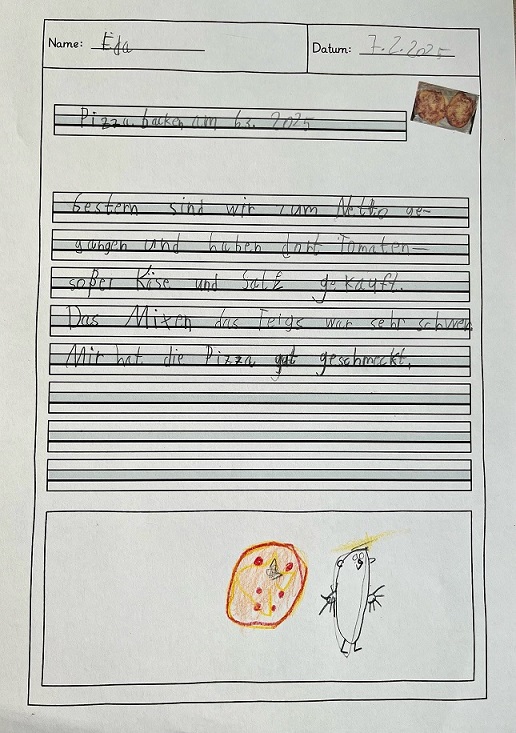 Name: Eda
Datum: 7.2.2025
Pizza backen am 6.2. 2025
Gestern sind wir zum Netto ge-
gangen und haben dort Tomaten-
soße, Käse und Salz gekauft.
Das Mixen das Teigs war sehr schwer.
Mir hat die Pizza gut geschmeckt.